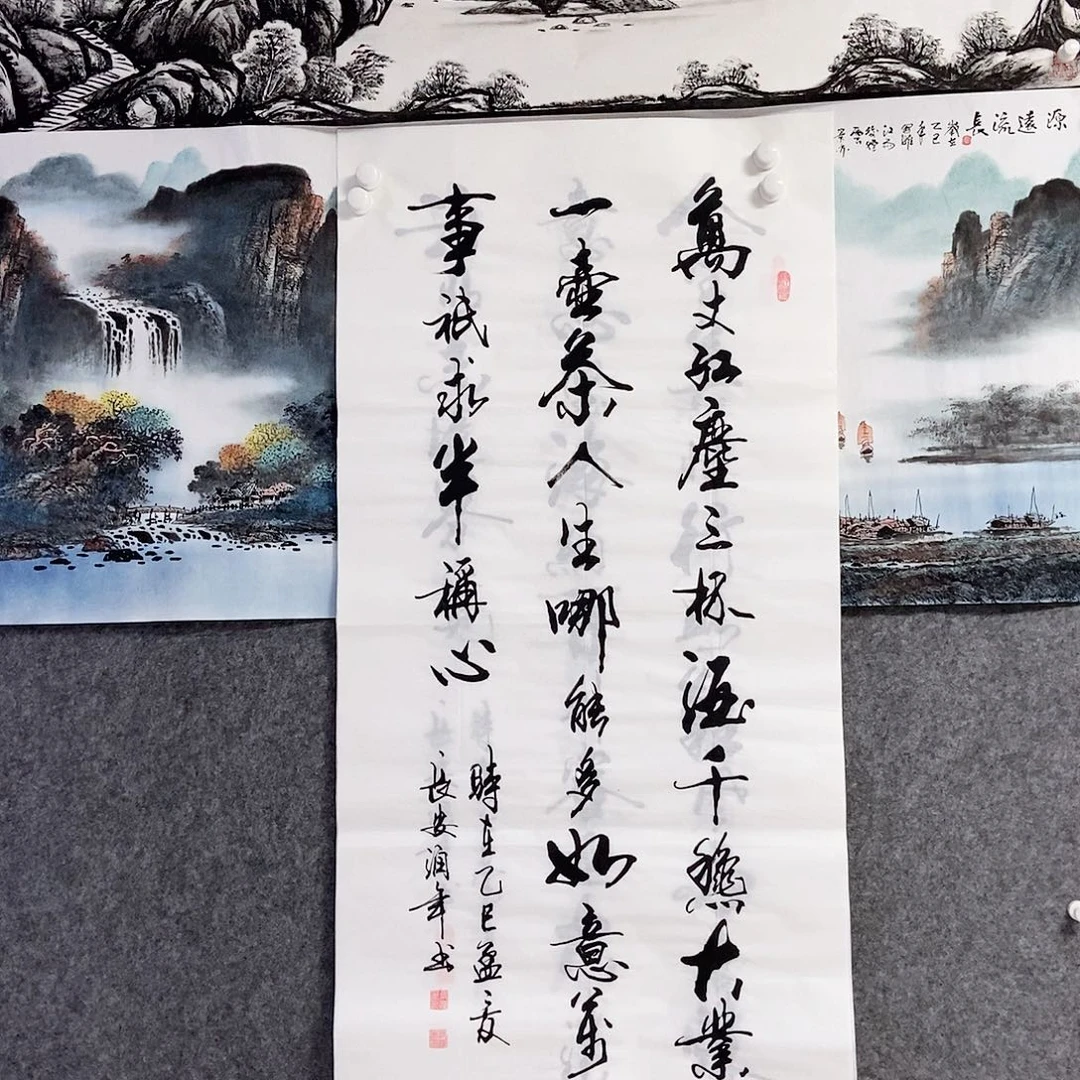 源遠流長
歲在
乙巳
年
萬丈红塵三杯酒千秋大業
一壺茶人生哪能多如意萬
事祇求半稱心
時在乙巳孟夏
長安润年书